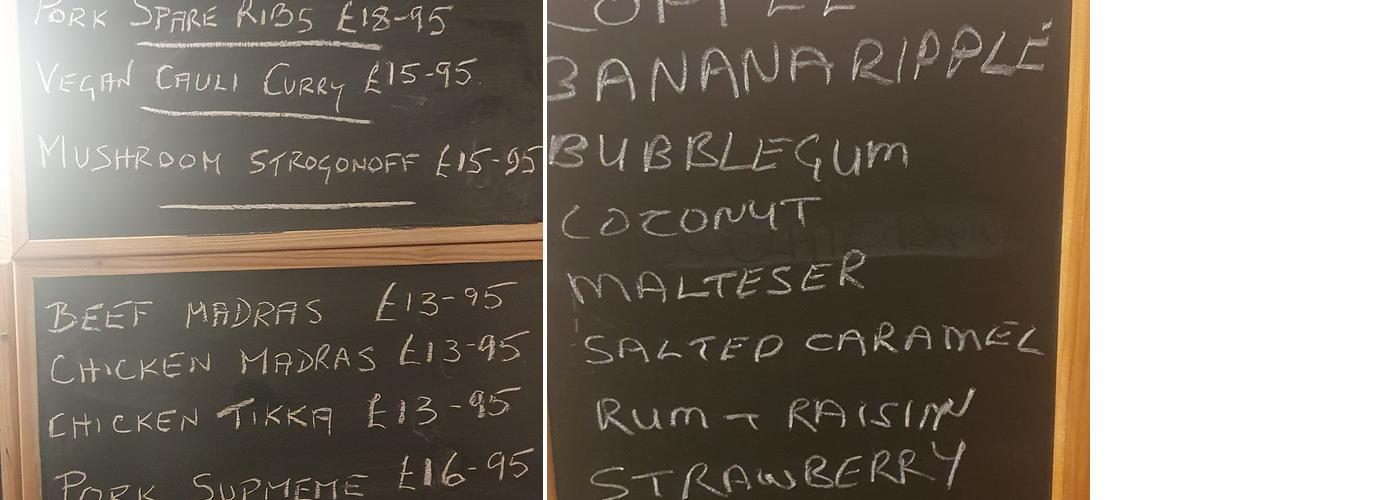 PORK SPARE RIBS £18-95
VEGAN CAULI CURRY £15-95.
MUSHROOM STROGONOFF £15-95
BEEF MADRAS £13-95
CHICKEN MADRAS £13-95
CHICKEN TIKKA £13-95
PORK SUPMEME £16-95
COFFEE
BANANA RIPPLE
BUBBLEGUM
COCONUT
MALTESER
SALTED CARAMEL
RUM + RAISIN
STRAWBERRY